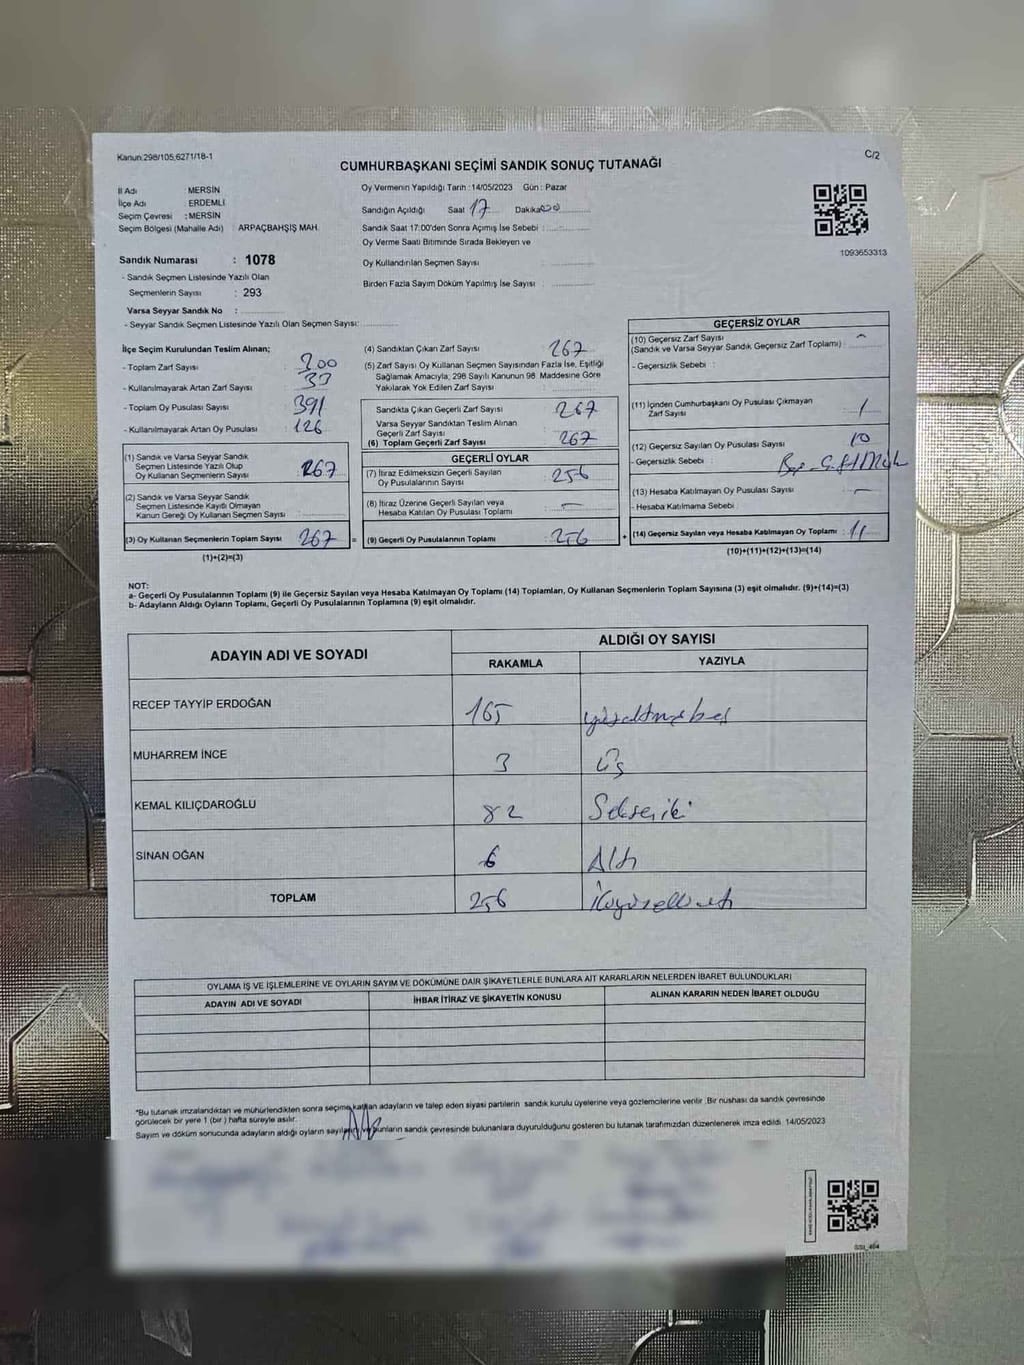 Kanun:298/105,6271/18-1
C/2
CUMHURBAŞKANI SEÇİMİ SANDIK SONUÇ TUTANAĞI
İl Adı : MERSİN
İlçe Adı : ERDEMLİ
Seçim Çevresi : MERSİN
Seçim Bölgesi (Mahalle Adı) : ARPAÇBAHŞİŞ MAH.
Sandık Numarası : 1078
- Sandık Seçmen Listesinde Yazılı Olan
Seçmenlerin Sayısı : 293
Varsa Seyyar Sandık No :
- Seyyar Sandık Seçmen Listesinde Yazılı Olan Seçmen Sayısı:
Oy Vermenin Yapıldığı Tarih : 14/05/2023 Gün : Pazar
Sandığın Açıldığı Saat 17 Dakika 00
Sandık Saat 17:00'den Sonra Açımış İse Sebebi :
Oy Verme Saati Bitiminde Sırada Bekleyen ve
Oy Kullandırılan Seçmen Sayısı :
Birden Fazla Sayım Döküm Yapılmış İse Sayısı :
1093653313
İlçe Seçim Kurulundan Teslim Alınan;
- Toplam Zarf Sayısı :
- Kullanılmayarak Artan Zarf Sayısı : 33
- Toplam Oy Pusulası Sayısı : 391
- Kullanılmayarak Artan Oy Pusulası : 126
(1) Sandık ve Varsa Seyyar Sandık
Seçmen Listesinde Yazılı Olup
Oy Kullanan Seçmenlerin Sayısı : 267
(2) Sandık ve Varsa Seyyar Sandık
Seçmen Listesinde Kayıtlı Olmayan
Kanun Gereği Oy Kullanan Seçmen Sayısı :
(3) Oy Kullanan Seçmenlerin Toplam Sayısı : 267 =
(1)+(2)=(3)
(4) Sandıktan Çıkan Zarf Sayısı : 267
(5) Zarf Sayısı Oy Kullanan Seçmen Sayısından Fazla İse, Eşitliği
Sağlamak Amacıyla, 298 Sayılı Kanunun 98. Maddesine Göre
Yakılarak Yok Edilen Zarf Sayısı :
Sandıkta Çıkan Geçerli Zarf Sayısı : 267
Varsa Seyyar Sandıktan Teslim Alınan
Geçerli Zarf Sayısı :
(6) Toplam Geçerli Zarf Sayısı : 267
GEÇERLİ OYLAR
(7) İtiraz Edilmeksizin Geçerli Sayılan
Oy Pusulalarının Sayısı : 256
(8) İtiraz Üzerine Geçerli Sayılan veya
Hesaba Katılan Oy Pusulası Toplamı : —
(9) Geçerli Oy Pusulalarının Toplamı : 256 +
GEÇERSİZ OYLAR
(10) Geçersiz Zarf Sayısı
(Sandık ve Varsa Seyyar Sandık Geçersiz Zarf Toplamı) : —
- Geçersizlik Sebebi :
(11) İçinden Cumhurbaşkanı Oy Pusulası Çıkmayan
Zarf Sayısı : 1
(12) Geçersiz Sayılan Oy Pusulası Sayısı : 10
- Geçersizlik Sebebi :
(13) Hesaba Katılmayan Oy Pusulası Sayısı : —
- Hesaba Katılmama Sebebi :
(14) Geçersiz Sayılan veya Hesaba Katılmayan Oy Toplamı : 11
(10)+(11)+(12)+(13)=(14)
NOT:
a- Geçerli Oy Pusulalarının Toplamı (9) ile Geçersiz Sayılan veya Hesaba Katılmayan Oy Toplamı (14) Toplamları, Oy Kullanan Seçmenlerin Toplam Sayısına (3) eşit olmalıdır. (9)+(14)=(3)
b- Adayların Aldığı Oyların Toplamı, Geçerli Oy Pusulalarının Toplamına (9) eşit olmalıdır.
ADAYIN ADI VE SOYADI ALDIĞI OY SAYISI
RAKAMLA YAZIYLA
RECEP TAYYİP ERDOĞAN 165 yüzaltmışbeş
MUHARREM İNCE 3 Üç
KEMAL KILIÇDAROĞLU 82 Seksen iki
SİNAN OĞAN 6 Altı
TOPLAM 256 İkiyüzelli altı
OYLAMA İŞ VE İŞLEMLERİNE VE OYLARIN SAYIM VE DÖKÜMÜNE DAİR ŞİKAYETLERLE BUNLARA AİT KARARLARIN NELERDEN İBARET BULUNDUKLARI
ADAYIN ADI VE SOYADI İHBAR İTİRAZ VE ŞİKAYETİN KONUSU ALINAN KARARIN NEDEN İBARET OLDUĞU
*Bu tutanak imzalandıktan ve mühürlendikten sonra seçime katılan adayların ve talep eden siyasi partilerin sandık kurulu üyelerine veya gözlemcilerine verilir .Bir nüshası da sandık çevresinde
görülecek bir yere 1 (bir ) hafta süreyle asılır.
Sayım ve döküm sonucunda adayların aldığı oyların sandık çevresinde bulunanlara duyurulduğunu gösteren bu tutanak tarafımızdan düzenlenerek imza edildi. 14/05/2023